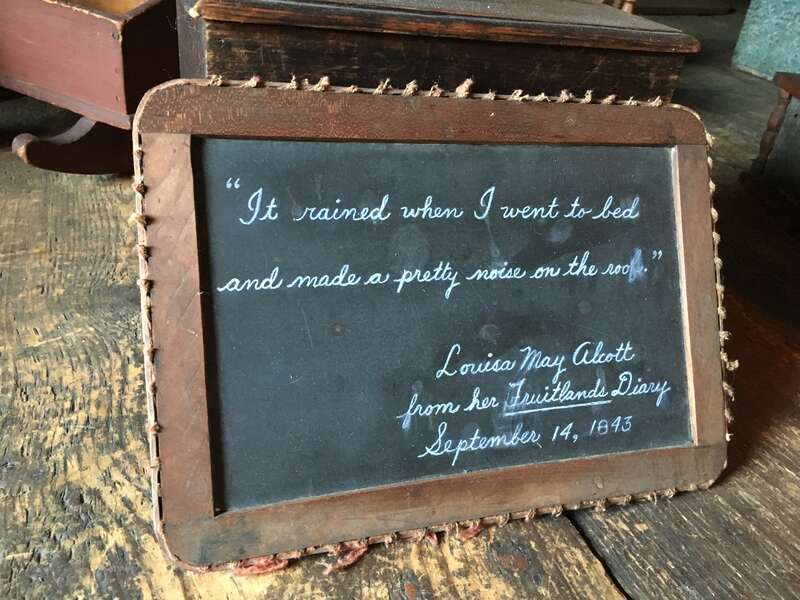 "It rained when I went to bed
and made a pretty noise on the roof."
Louisa May Alcott
from her Fruitlands Diary
September 14, 1843